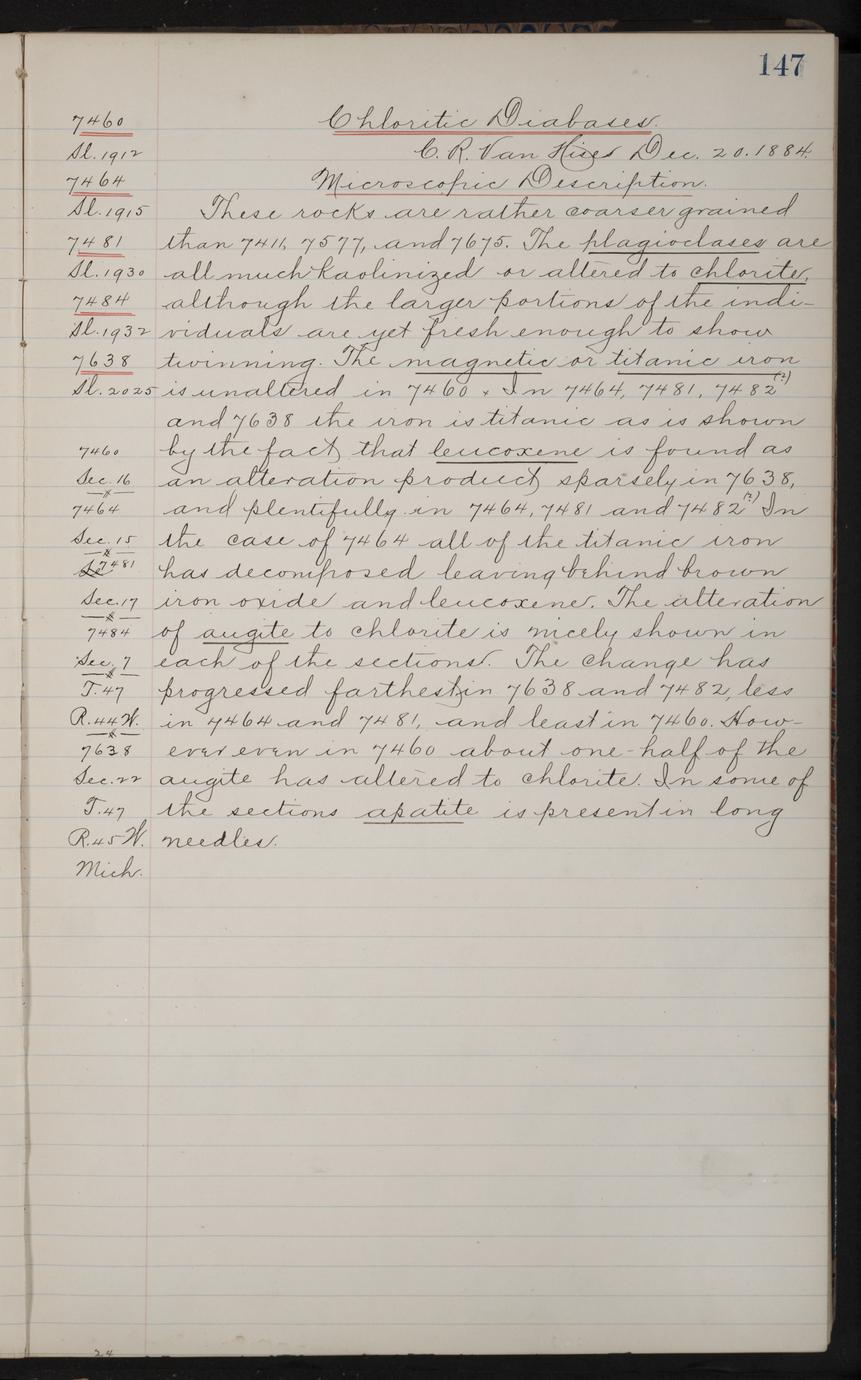 147
7460 Chloritic Diabases.
Sl. 1912 C. R. Van Hise Dec. 20. 1884.
7464 Microscopic Description.
Sl. 1915 These rocks are rather coarser grained
7481 than 7411, 7577, and 7675. The plagioclases are
Sl. 1930 all much kaolinized or altered to chlorite,
7484 although the larger portions of the indi-
Sl. 1932 viduals are yet fresh enough to show
7638 twinning. The magnetic or titanic iron
Sl. 2025 is unaltered in 7460. In 7464, 7481, 7482(?)
and 7638 the iron is titanic as is shown
7460 by the fact, that leucoxene is found as
Sec. 16 an alteration product, sparsely in 7638,
7464 and plentifully in 7464, 7481 and 7482(?) In
Sec. 15 the case of 7464 all of the titanic iron
7481 has decomposed leaving behind brown
Sec. 17 iron oxide and leucoxene. The alteration
7484 of augite to chlorite is nicely shown in
Sec. 7 each of the sections. The change has
T. 47 progressed farthest in 7638 and 7482, less
R. 44 W. in 7464 and 7481, and least in 7460. How-
7638 ever even in 7460 about one-half of the
Sec. 22 augite has altered to chlorite. In some of
T. 47 the sections apatite is present in long
R. 45 W. needles.
Mich.
24